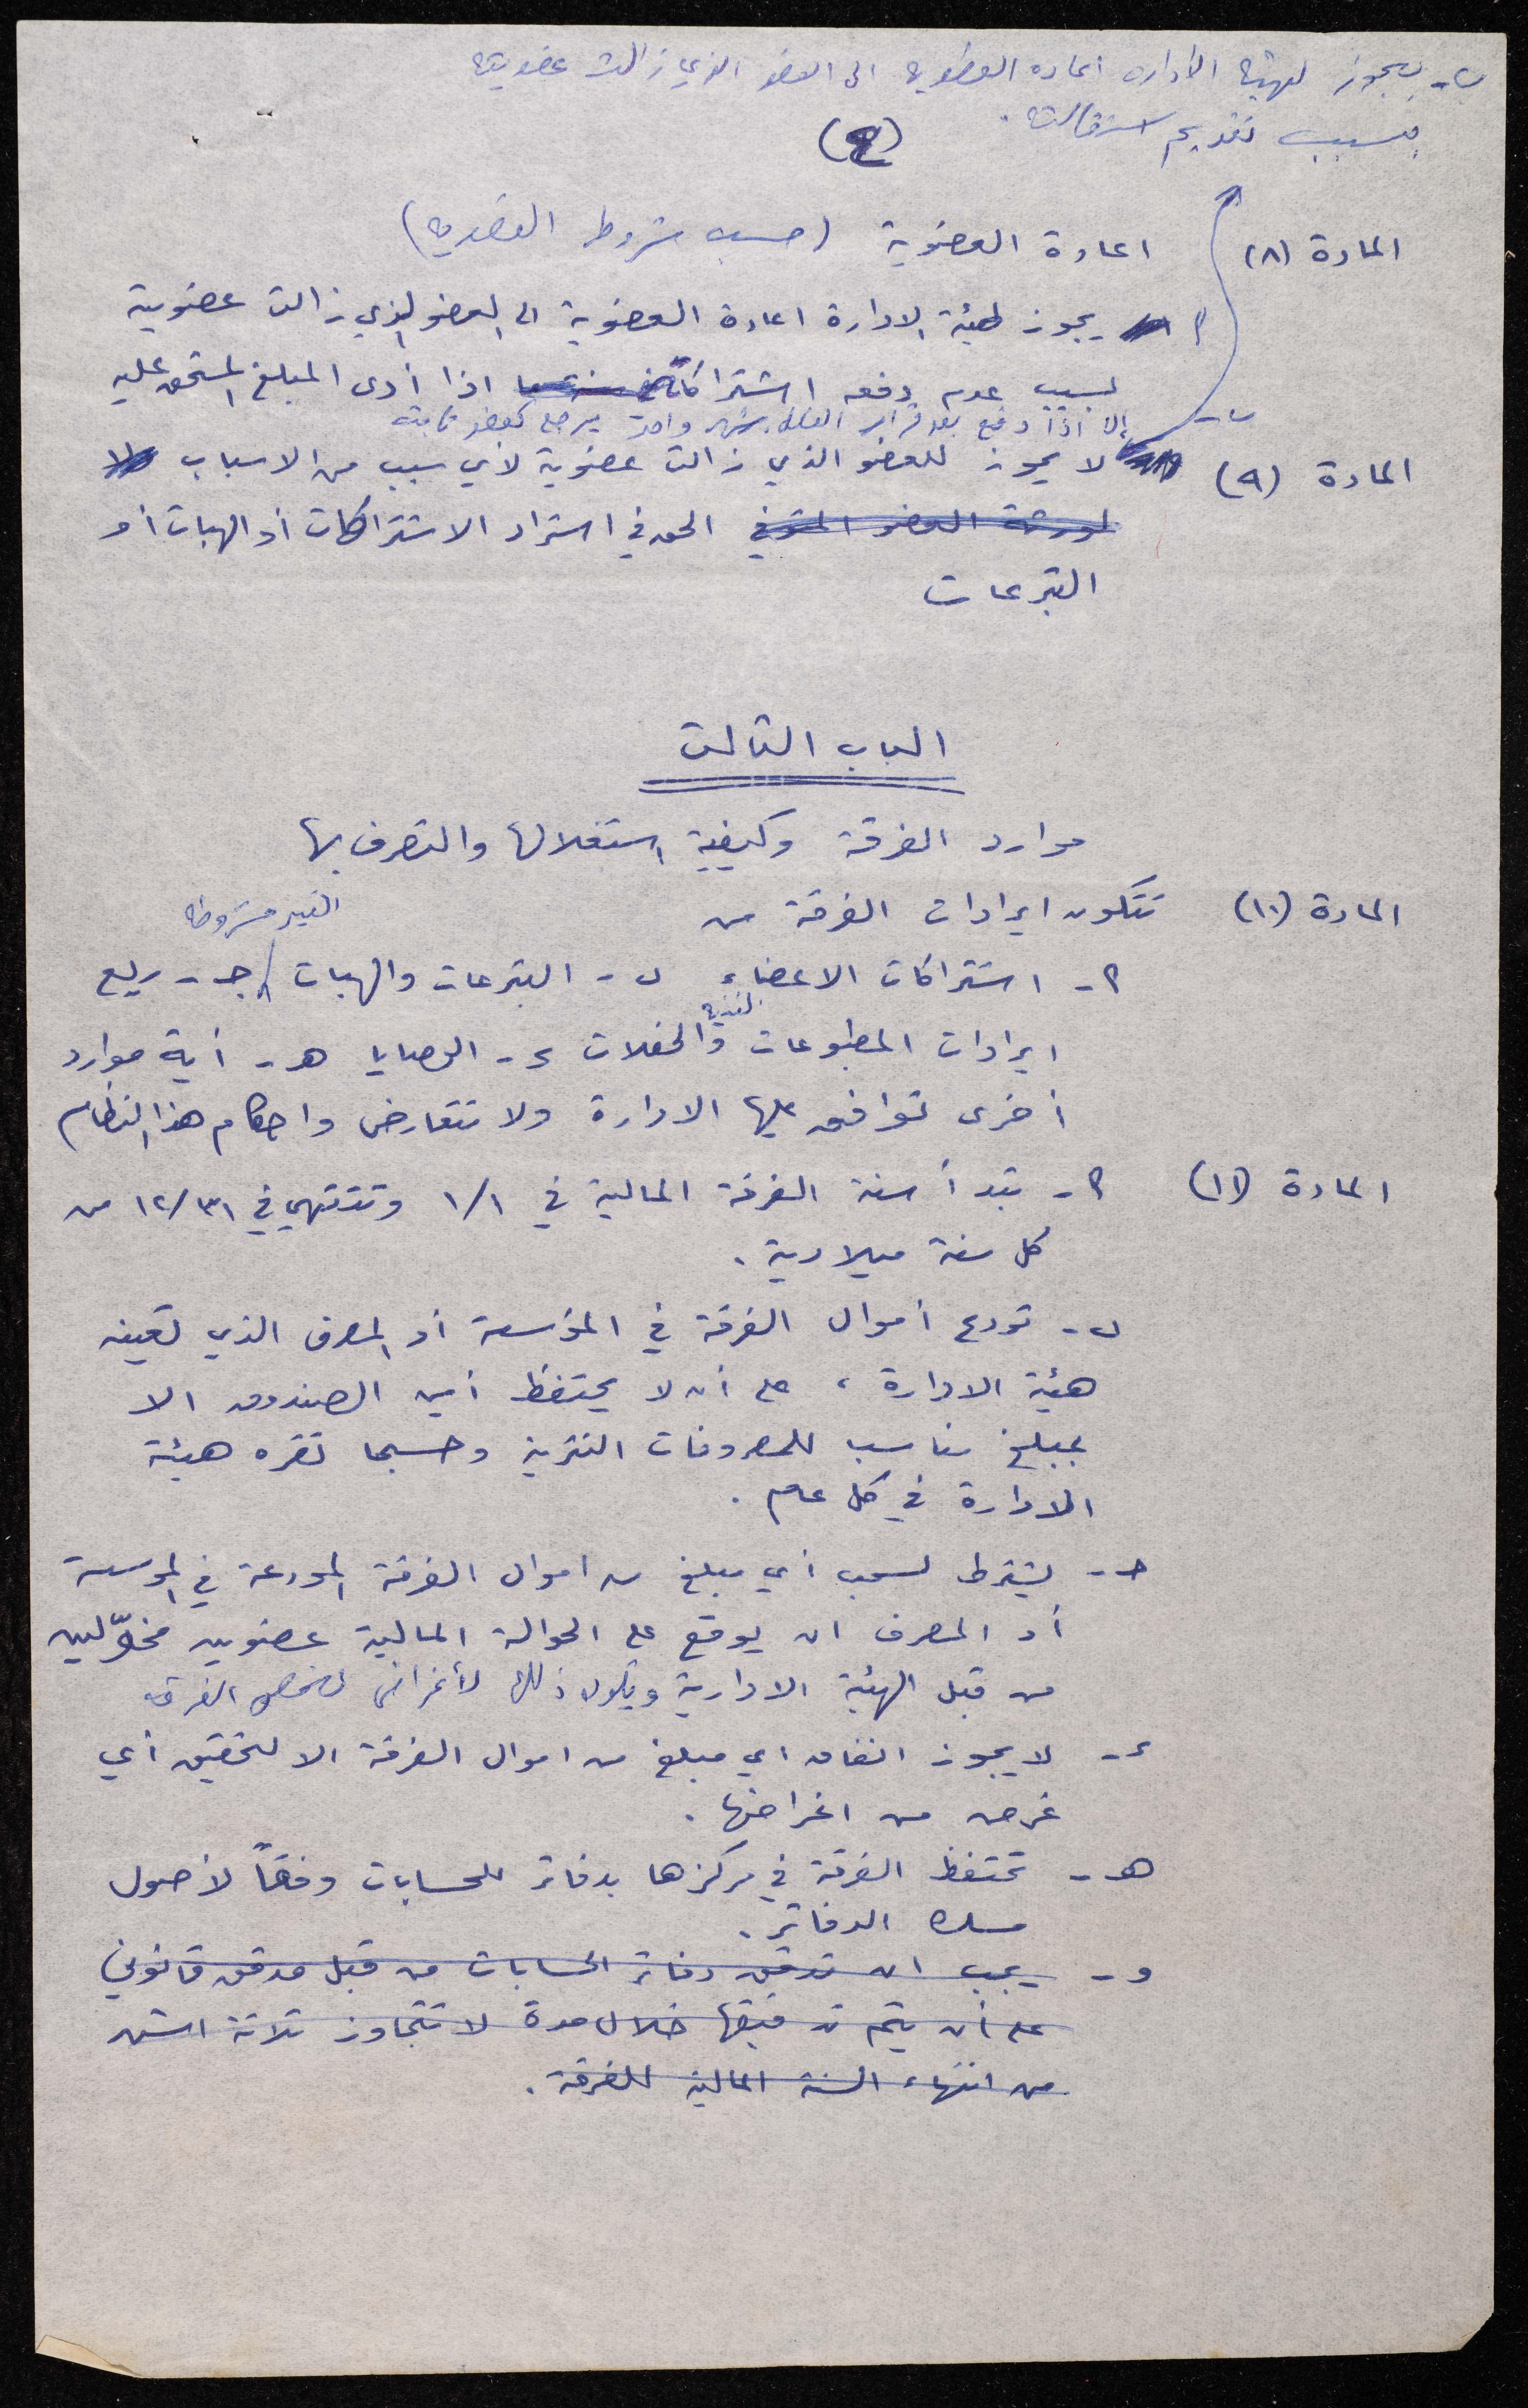 ب- يجوز لهيئة الاداره اعاده العضويه الى العضو الذي زالت عضويته
بسبب تقديم استقالته.
(٤)
المادة (٨) اعادة العضوية (حسب شروط العضويه)
أ- يجوز لهيئة الادارة اعادة العضوية الى العضو الذي زالت عضوية
لسبب عدم دفعه اشتراكاته اذا أدى المبلغ المستحق عليه
ب- إلا اذا دفع بعد قرار الفصل بشهر واحد يرجع كعضو ثابته
المادة (٩) لا يجوز للعضو الذي زالت عضوية لأي سبب من الاسباب ولا
لورثة العضو المتوفي الحق في استرداد الاشتراكات أو الهبات أو
التبرعات
الباب الثالث
موارد الفرقة وكيفية استغلالها والتصرف بها
المادة (١٠) تتكون ايرادات الفرقة من
الغير مشروطه
أ- اشتراكات الاعضاء ب- التبرعات والهبات جـ- ريع
الفنية
ايرادات المطبوعات والحفلات د- الوصايا هـ- أية موارد
أخرى توافق عليها الادارة ولا تتعارض واحكام هذا النظام
المادة (١١) أ- تبدأ سنة الفرقة المالية في ١/١ وتنتهي في ١٢/٣١ من
كل سنة ميلادية.
ب- تودع أموال الفرقة في المؤسسة أو المصرف الذي تعينه
هيئة الادارة، على أن لا يحتفظ أمين الصندوق الا
بمبلغ مناسب للمصروفات النثرية وحسبما تقره هيئة
الادارة في كل عام.
جـ- يشترط لسحب أي مبلغ من اموال الفرقة المودعة في المؤسسة
أو المصرف ان يوقع على الحوالة المالية عضوين مخوّلين
من قبل الهيئة الادارية ويكون ذلك لأغراض تخص الفرقه
د- لا يجوز انفاق اي مبلغ من اموال الفرقة الا لتحقيق أي
غرض من اغراضها.
هـ- تحتفظ الفرقة في مركزها بدفاتر للحسابات وفقاً لأصول
مسك الدفاتر.
و- يجب ان تدقق دفاتر الحسابات من قبل مدقق قانوني
على أن يتم تدقيقها خلال مدة لا تتجاوز ثلاثة اشهر
من انتهاء السنة المالية للفرقة.